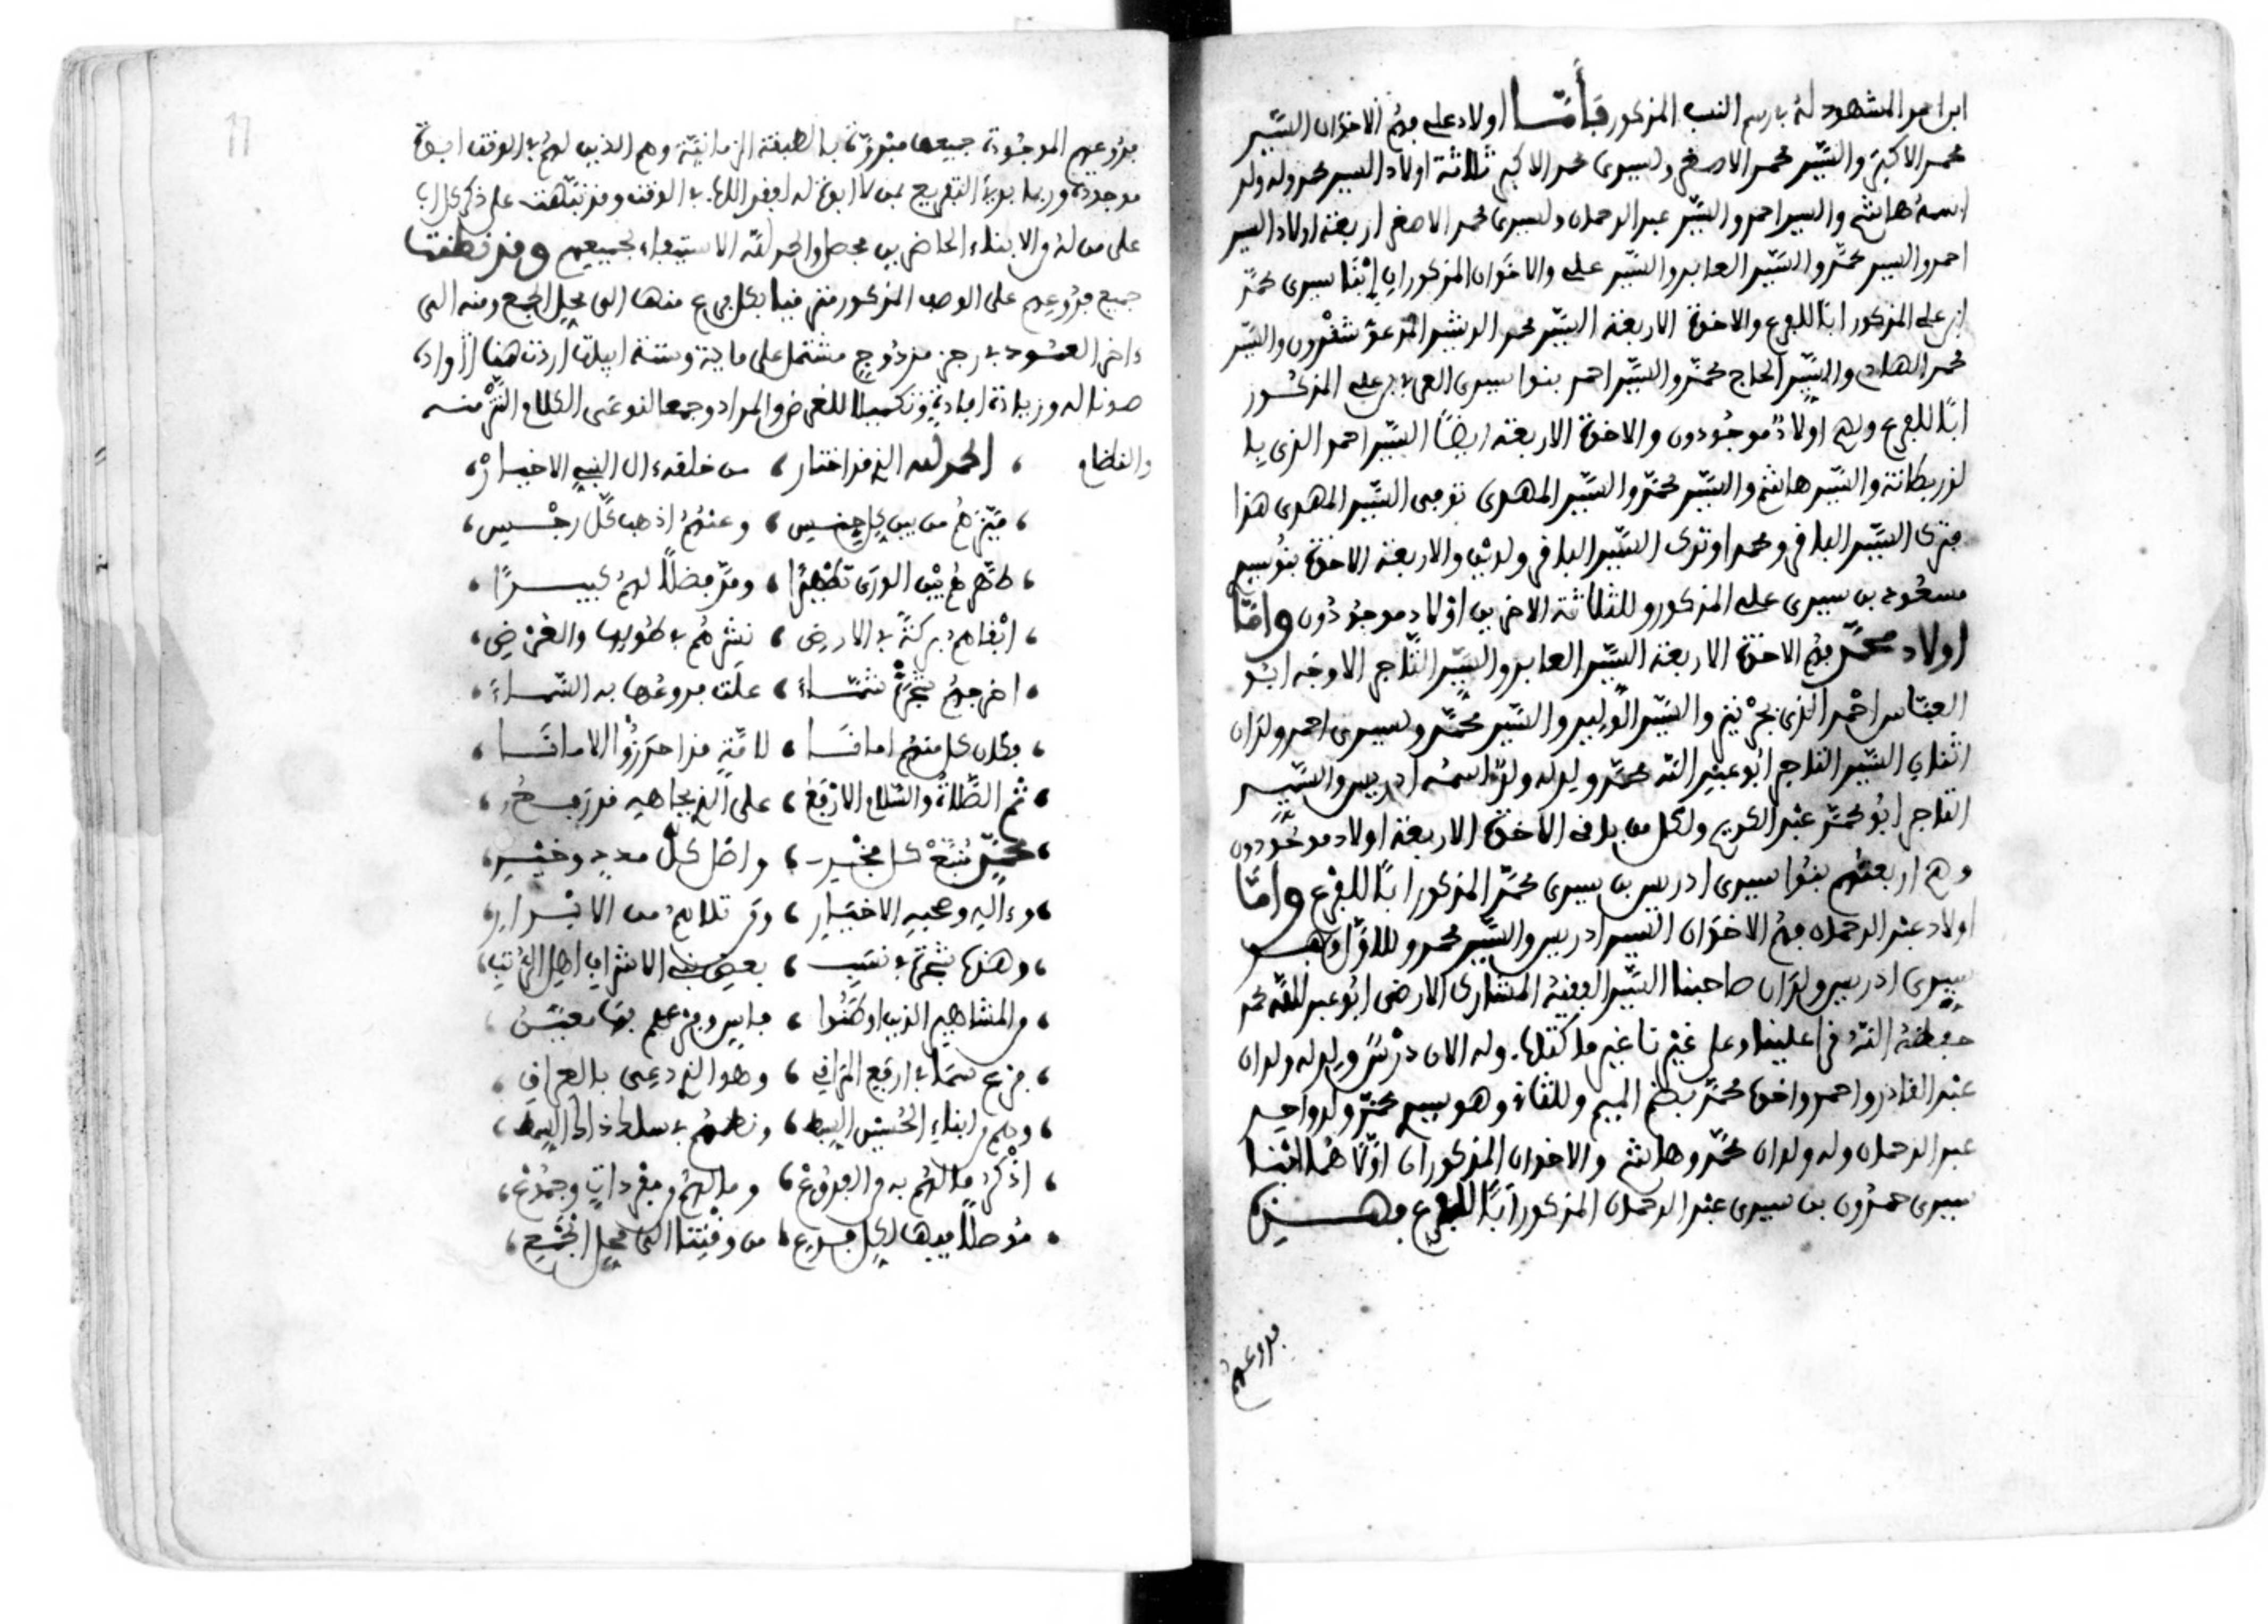 ابراهيم المشهود له بارسم النسب المذكور فأما اولاد علي فهم الاخوان السيد
محمد الاكبر والسيد محمد الاصغر ولسيدي محمد الاكبر ثلاثة اولاد السيد محمد وله ولد
اسمه هاشم والسيد احمد والسيد عبد الرحمان ولسيدي محمد الاصغر اربعة اولاد السيد
احمد والسيد محمد والسيد العابد والسيد علي والاخوان المذكوران ابنا سيدي محمد
ابن علي المذكور ابا للفرع والاخوة الاربعة السيد محمد الرشيد المدعو شقرون والسيد
محمد الهادي والسيد الحاج محمد والسيد احمد بنوا سيدي العربي بن علي المذكور
ابا للفرع ولهم اولاد موجودون والاخوة الاربعة ايضا السيد احمد الذي با
والسيد هاشم والسيد محمد والسيد المهدي توفي السيد المهدي هذا
فترك السيد البافي ومحمدا وترك السيد البافي ولدين والاربعة الاخوة بنو سيدي
مسعود بن سيدي علي المذكور وللثلاثة الاخرين اولاد موجودون واما
اولاد محمد فهم الاخوة الاربعة السيد العابد والسيد التاجر الاوجه ابو
العباس احمد الذي والسيد الوليد والسيد محمد ولسيدي احمد ولدان
اثنان السيد التاجر ابو عبد الله محمد وليد له ولد اسمه ادريس والسيد
التاجر ابو محمد عبد الكريم ولكل من باقي الاخوة الاربعة اولاد موجودون
وهم اربعتهم بنوا سيدي ادريس بن سيدي محمد المذكور ابا للفرع واما
اولاد عبد الرحمان فهم الاخوان السيد ادريس والسيد محمد وللاول وهو
سيدي ادريس ولدان صاحبنا السيد الفقيه المشارك الارضى ابو عبد الله محمد
حفظه الله فرا علينا وعلى غيرنا غير ما كتاب وله الان درس وليد له ولدان
عبد القادر واحمد واخوه محمد بضم الميم وللثاني وهو سيدي محمد ولد واحد
عبد الرحمان وله ولدان محمد وهاشم والاخوان المذكوران اولا هما ابنا
سيدي حمدون بن سيدي عبد الرحمان المذكور ابا للفرع وهذه
فروعهم
فروعهم الموجودة جميعها مبدوة بالطبقة الزمانية وهم الذين لهم في الوقت ابوة
موجودة وربما بدئ التفريع بمن لا ابوة له لفقد الاباء في الوقت وقد نبهت على ذكر كل ابا
على من له من الابناء الحاضرين محصل والحمد لله الاستيعاب لجميعهم وقد نظمت
جميع فروعهم على الوصف المذكور مترفيا بكل فرع منها الى محل الجمع ومنه الى
ءاخر العمود في رجز مزدوج مشتمل على ماية وستة ابيات اردت هنا ايراده
صونا له وزيادة افادة وتكميلا للغرض والمراد وجمعا لنوعي الكلام النثر منه
والنظام
الحمد لله الذي قد اختار ، من خلقه ءال النبي الاخيار
ميزهم من بين كل جنس ، وعنهم اذهب كل رجس
طهرهم بين الورى تطهيرا ، ومد فضلا لهم كبيرا
ابقاهم بركة في الارض ، نشرهم في طولها والعرض
اخرجهم شجرة شماء ، علت فروعها به السماء
فكان كل منهم امانا ، لامة قد احرزوا الامانا
ثم الصلاة والسلام الارفع ، على الذي بجاهه قد
محمد منبع كل مخير ، واصل كل مدد وخير
وءاله وصحبه الاخيار ، ومن تلاهم من الابرار
وهذه شجرة في نسب ، بعض بني الاشراف اهل الرتب
من المشاهير الذين اوطنوا ، فاس
فرع سما في ارفع المراقي ، وهو الذي دعي بالعراقي
وهم من ابناء الحسين السبط ، ونظمهم في سلك ذاك السمط
اذكر مالهم به من الفروع ، وما لهم من مفردات وجموع
موصلا فيها لكل فرع ، من وقتنا الى محل الجمع